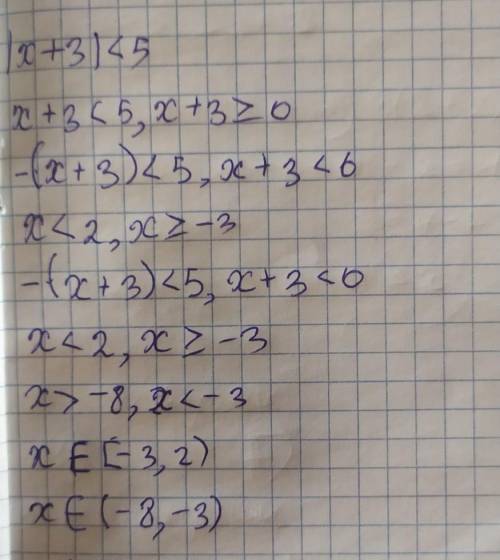 |x+3|<5
x+3<5, x+3≥0
-(x+3)<5, x+3<0
x<2, x≥-3
-(x+3)<5, x+3<0
x<2, x≥-3
x>-8, x<-3
x∈[-3,2)
x∈(-8,-3)